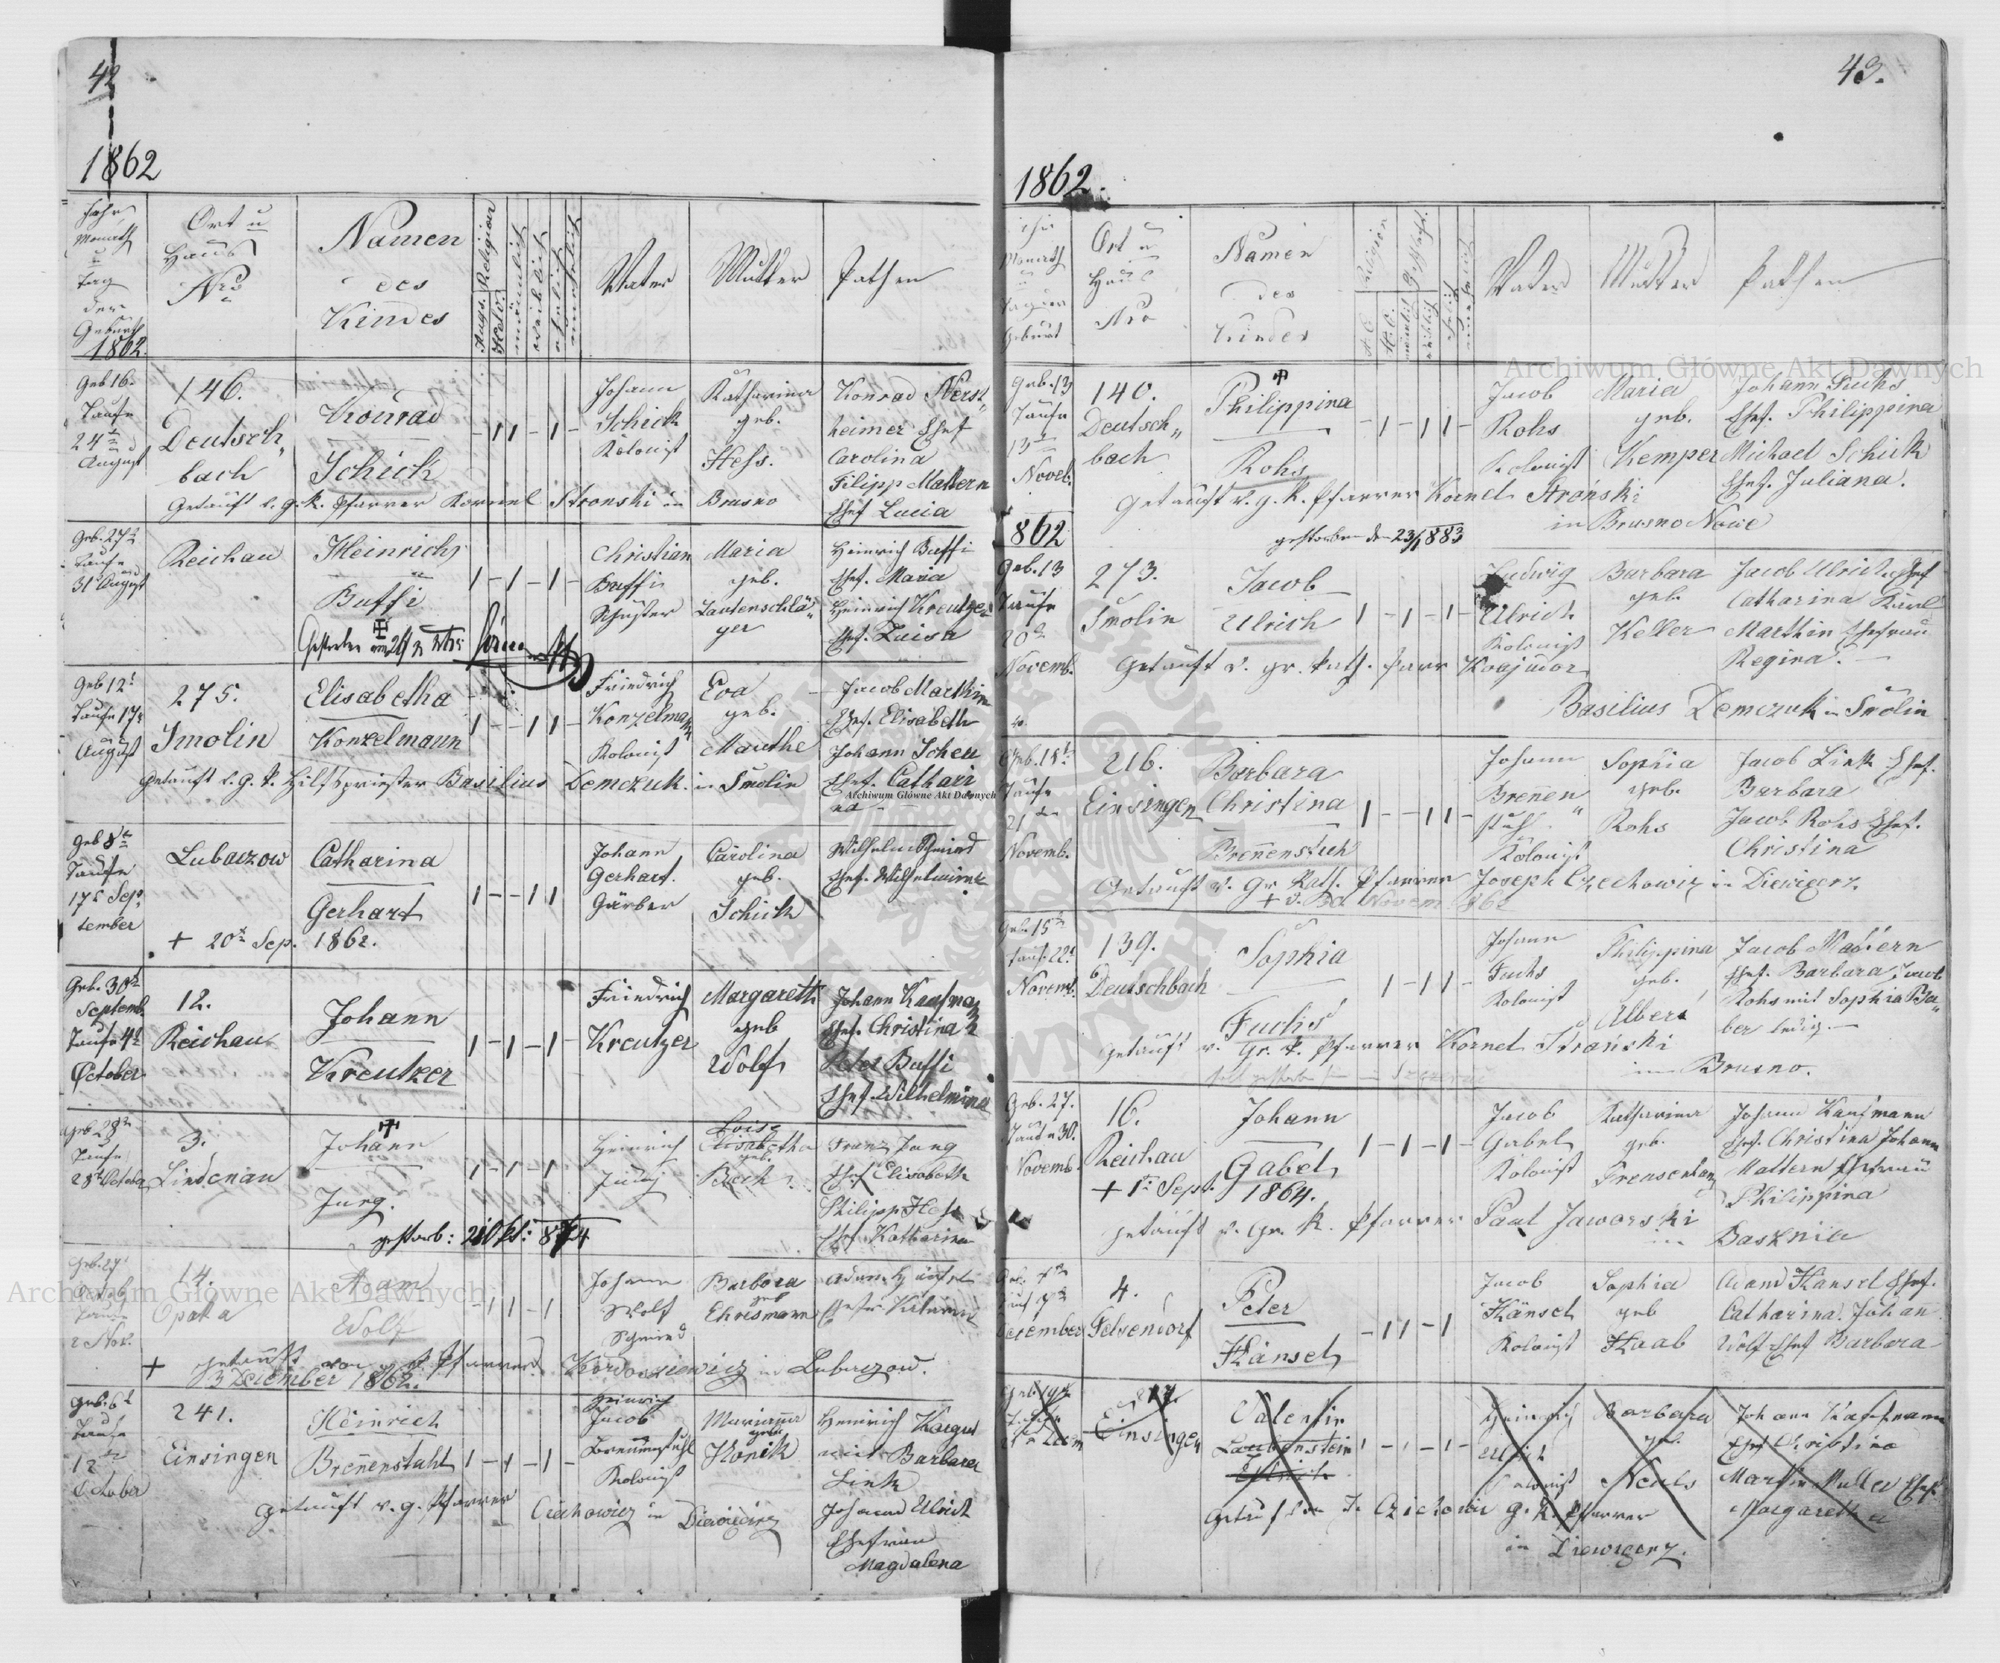 42
1862
Jahr
Monath
u
Tag
der
Geburth
1862.
Ort u
Haus
Nro
Namen
des
Kindes
Religion
Augs.
Helv.
männlich
weiblich
ehelich
unehelich
Vater
Mutter
Pathen
Geb 16.
Taufe
24te
August
146.
Deutsch
bach
Konrad
Schick
Johann
Schick
Kolonist
Katharina
geb.
Hess.
Konrad
heimer Ehef
Carolina
Filipp Mattern
Ehef Lucia
Getauft v. g. k. Pfarrer Kornel Stronski in Brusno
Geb. 27te
Taufe
31 August
Reichau
Heinrich
Buffi
Christian
Buffi
Schuster
Maria
geb.
Lautenschlä
ger
Heinrich Buffi
Ehef. Maria
Heinrich Kreutzer
Ehef. Luisa
Gestorben
Geb 12t
Taufe 17t
August
275.
Smolin
Elisabetha
Konzelmann
Friedrich
Konzelmann
Kolonist
Eva
geb.
Mauthe
Jacob Marthin
Ehef. Elisabeth
Johann Scheu
Ehef. Cathari
na
getauft v. g. k. Hilfspriester Basilius Demczuk in Smolin
Geb 8te
Taufe
17t Sep
tember
Lubaczow
Catharina
Gerhart
Johann
Gerhart.
Gärber
Carolina
geb.
Schick
Wilhelm Schmied
Ehef. Wilhelmine
+ 20t Sep. 1862.
Geb. 30te
Septemb.
Taufe 4te
October
12.
Reichau
Johann
Kreutzer
Friedrich
Kreutzer
Margareth
geb
Wolf
Johann Kaufmann
Ehef. Christina
Peter Buffi
Ehef. Wilhelmina
Taufe
28te October
3.
Lindenau
Johann
Jung.
Heinrich
Jung
Loise
Elisabetha
geb.
Beck
Franz Jung
Ehef Elisabeth
Philipp Hess
Ehef Katharina
gestorb:
Geb. 27
Octob
Taufe
2 Nov.
14.
Opaka
Adam
Wolf
Johann
Wolf
Schmied
Barbara
geb
Ehrismann
Adam
+ getauft von g. k. Pfarrer in Lubaczow.
3 Dezember 1862.
Geb. 6t
Taufe
12te
October
241.
Einsingen
Heinrich
Brenenstuhl
Heinrich
Jacob
Brennenstuhl
Kolonist
Marianna
geb.
Konik
Heinrich Kargul
mit Barbara
Link
Johann Ulrich
Ehefrau
Magdalena
getauft v. g. Pfarrer Czechowicz in Diewiecirz
43.
1862.
Jahr
Monath
u
Tag der
Geburt
Ort u
Haus
Nro
Namen
des
Kindes
Religion
A. C.
H. C.
Geschlecht.
männlich
weiblich
ehelich
unehelich
Vater
Mutter
Pathen
Geb. 13
Taufe
13te
Noveb.
140.
Deutsch
bach
Philippina
Rohs
Jacob
Rohs
Kolonist
Maria
geb.
Kemper
Johann Fuchs
Ehef. Philippina
Michael Schick
Ehef. Juliana.
Getauft v. g. k. Pfarrer Kornel Stroński
in Brusno Nowe
1862
gestorben den 23/1883
Geb. 13
Taufe
20te
Novemb.
273.
Smolin
Jacob
Ulrich
Ludwig
Ulrich
Kolonist
Barbara
geb.
Keller
Jacob Ulrich Ehef
Catharina Karl
Marthin Ehefrau
Regina.
Getauft v. gr. kath. Pfarr Koajutor
Basilius Demczuk in Smolin
Geb. 15t
Taufe
21te
Novemb.
216.
Einsingen
Barbara
Christina
Brenenstuh
Johann
Brenen
stuhl
Kolonist
Sophia
geb.
Rohs
Jacob Link Ehef.
Barbara
Jacob Rohs Ehef.
Christina
Getauft v. Gr. Kath. Pfarrer Joseph Czechowicz in Diewigerz.
Geb. 15te
Tauf. 22t
Novemb.
139.
Deutschbach
Sophia
Fuchs
Johann
Fuchs
Kolonist
Philippina
geb.
Alberi
Jacob Mattern
Ehef. Barbara, Jacob
Rohs mit Sophia
ber ledig.
getauft v. Gr. k. Pfarrer Kornel Stroński
in Brusno.
Geb. 27.
Taufe 30.
Novemb.
16.
Reichau
Johann
Gabel
Jacob
Gabel
Kolonist
Katharina
geb.
Johann Kaufmann
Ehef. Christina Johann
Mattern Ehefrau
Philippina
+ 1te Sept. 1864.
getauft v. Gr. K. Pfarrer Paul Jaworski
in Basznia
December
4.
Felsendorf
Peter
Hänsel
Jacob
Hänsel
Kolonist
Sophia
geb
Haab
Adam Hänsel Ehef.
Catharina. Johan
Wolf Ehef Barbara
Einsingen
Valentin
Laubenstein
Heinrich
Ulrich
Kolonist
Barbara
geb.
Johann Kaufmann
Ehef Christina
Martin Muller Ehef
Margaretha
getauft J. Czechowicz g. k. Pfarrer
in Diewigerz.
Archiwum Główne Akt Dawnych
Archiwum Główne Akt Dawnych
Archiwum Główne Akt Dawnych